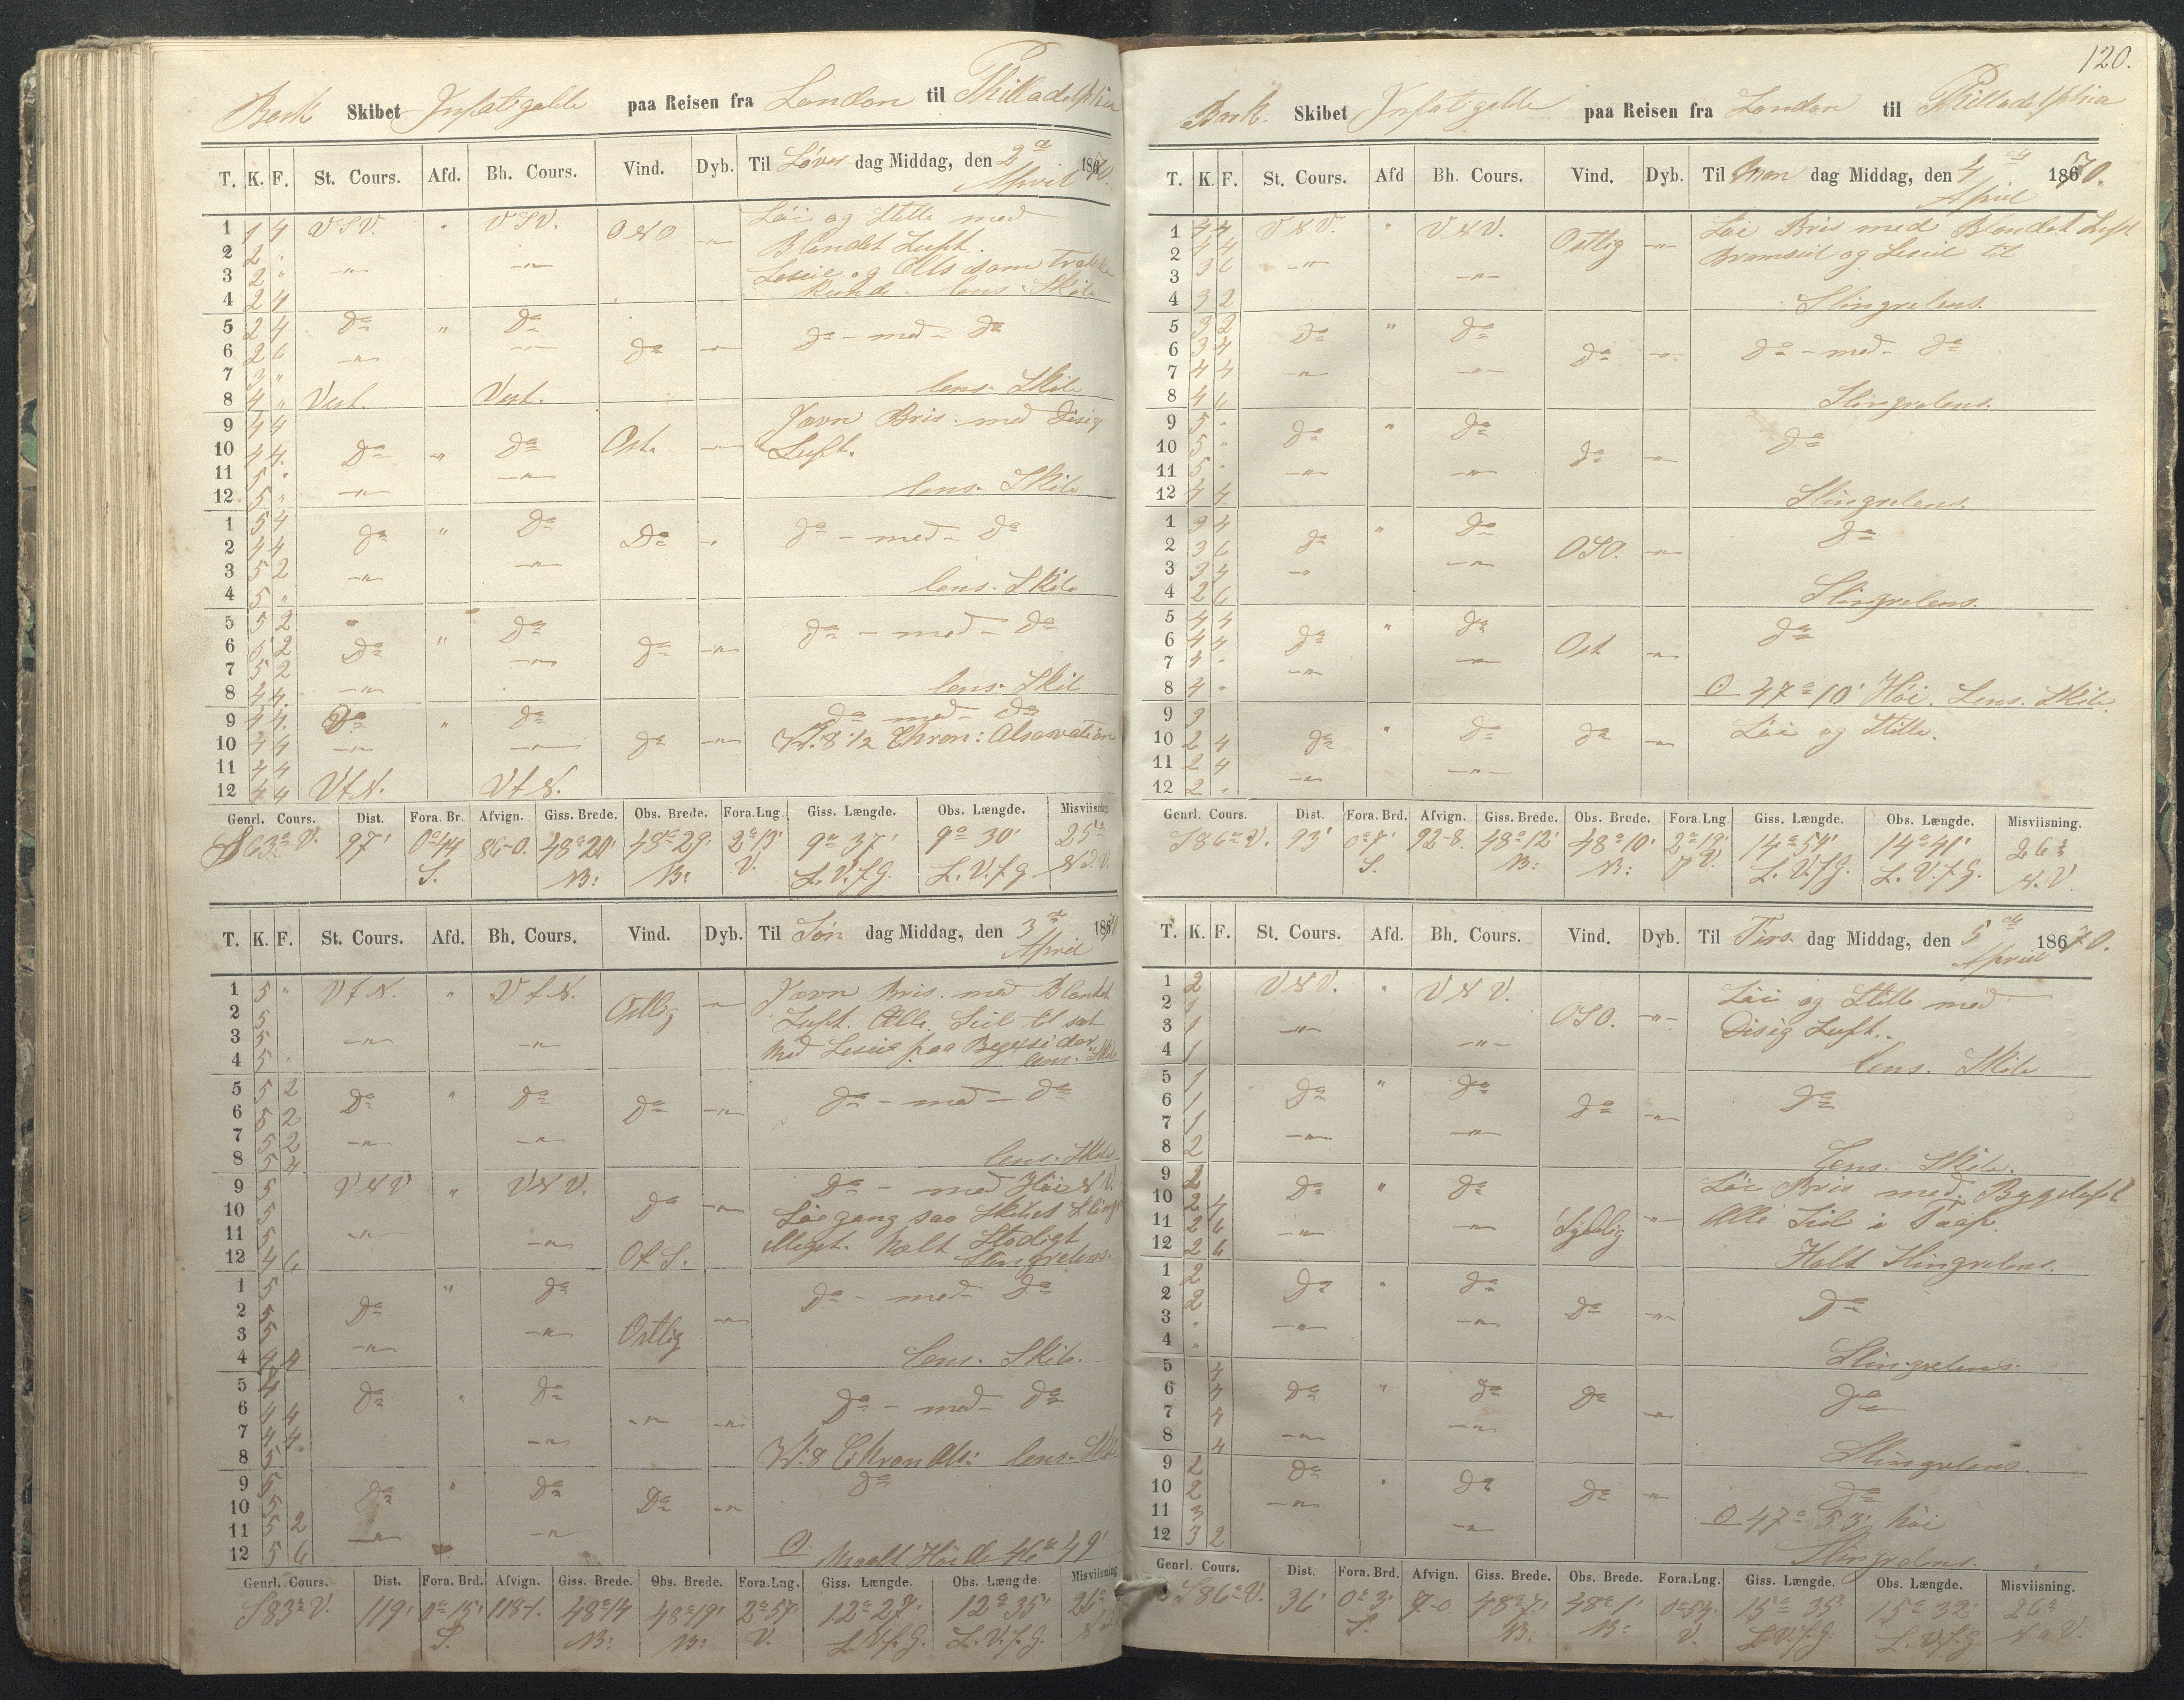 Bark Skibet Infatigable paa Reisen fra London til Philladelphia
T. K. F. St. Cours. Afd. Bh. Cours. Vind. Dyb. Til Løver dag Middag, den 2de April 1870.
1 1 4 VSV. " VSV. ONO -"- Löi og Stille med
2 2 " Blandet Luft.
3 2 " -"- -"- Leseil og Alls som Trække
4 2 4 kunde. lens Skib
5 2 4 Do " Do
6 2 6 -"- -"- Do -"- Do - med - Do
7 3 "
8 4 " Vest. Vest. lens. Skib
9 4 4 Jævn Bris med Disig
10 4 4. Do " Do Ost. -"- Luft.
11 5 " -"-
12 5 " -"- lens. Skib
1 5 4 Do " Do Do " Do - med - Do
2 4 4
3 5 2 -"- -"-
4 5 " lens. Skib
5 5 2 Do Do - med - Do
6 5 2 Do " Do -"-
7 5 2 -"-
8 4 4. -"- lens. Skib
9 4 4. Do " Do Do med Do
10 4 4 -"- -"- Do -"- Kl. 8 1/2 Chron: Absovation
11 4 4
12 4 4 VtN. VtN.
Genrl. Cours. Dist. Fora. Br. Afvign. Giss. Brede. Obs. Brede. Fora.Lng. Giss. Længde. Obs. Længde. Misviisning.
S 63° V. 97' 0°44 86-0. 48°20' 48°29' 2°13' 9° 37' 9° 30' 25°
S. B: B: V. L. V. f. G. L. V. f. G N.V.
T. K. F. St. Cours. Afd. Bh. Cours. Vind. Dyb. Til Søn dag Middag, den 3de April 1870.
1 5 " VtN. " VtN. Ostlig -"- Jævn Bris. med Blandet
2 5 Luft. Alle Seil til sat
3 5 -"- -"- med Leseil paa Begge sider
4 5 . lens. Skib
5 5 2 Do " Do Do -"- Do - med - Do
6 5 2
7 5 2 -"- -"-
8 5 4 lens. Skib
9 5 VNV " VNV. Do -"- Do - med Høi N.V.
10 5 Søegang saa Skibet Slinger
11 5 -"- -"- Meget. Holt Stadigt
12 4 6 OtS. Slingrelens.
1 5 " Do Do - med - Do
2 5 Do -"-
3 5 -"- Ostlig
4 4 4 -"- lens. Skib.
5 4 Do " Do Do - med - Do
6 4 4 -"- -"-
7 4 4. -"-
8 5 Kl. 8 Chron Abs: lens. Skib
9 5 Do " Do Do
10 5 Do -"-
11 5 2 -"- -"-
12 5 6 O Maalt Høide 46° 49'
Genrl. Cours. Dist. Fora. Brd. Afvign. Giss. Brede. Obs. Brede. Fora.Lng. Giss. Længde. Obs. Længde Misviisning.
S 83° V. 119' 0°15' 118-1. 48°14 48°19' 2°57' 12° 27' 12° 35' 26°
S. B: B: V. L. V. f. G. L. V. f. G.
120.
Bark. Skibet Infatigable paa Reisen fra London til Philladelphia
T. K. F. St. Cours. Afd Bh. Cours. Vind. Dyb. Til Man dag Middag, den 4de April 1870.
1 4 4 VNV. " VNV. Ostlig -"- Löi Bris med Blandet Luft
2 4 4 Bramseil og Leseil til
3 3 6 -"- -"-
4 3 2 Slingrelens.
5 3 2 Do " Do
6 3 4 Do -"- Do - med - Do
7 4 4 -"- -"-
8 4 6 Slingrelens.
9 5 " Do " Do Do
10 5 " Do -"-
11 5 " -"- -"-
12 4 4 Slingrelens.
1 3 4 " Do Do
2 3 6 Do OSO. -"-
3 3 4 -"- -"-
4 2 6 Slingrelens.
5 4 4 " Do Do
6 4 4 Do Ost -"-
7 4 " -"- -"-
8 4 " O 47° 10' Høi. Lens. Skib.
9 3 " Do Löi og Stille.
10 2 4 Do Do -"-
11 2 4 -"-
12 2 " -"-
Genrl. Cours. Dist. Fora. Brd. Afvign. Giss. Brede. Obs. Brede. Fora.Lng Giss. Længde. Obs. Længde. Misviisning.
S 86° V. 93' 0°7' 92-8. 48°12' 48°10' 2°19' 14° 54' 14° 41' 26°
S. B: B: V. L. V. f. G. L. V. f. G. N.V.
T. K. F. St. Cours. Afd. Bh. Cours. Vind. Dyb. Til Tirs dag Middag, den 5de April 1870.
1 2 VNV. " VNV. Löi og Stille med
2 1 OSO. -"- Disig Luft.
3 1 -"-
4 1 -"- lens. Skib
5 1 Do " Do Do
6 1 Do -"-
7 1 -"- -"-
8 2 Lens. Skib.
9 2 Do " Do Löi Bris med Bygeluft
10 2 4 Sydlig -"- Alle Seil i Taap.
11 2 6 -"- -"-
12 2 6 Holt Slingrelens.
1 2 Do " Do Do
2 2 Do -"-
3 " -"- -"-
4 " Slingrelens.
5 4 Do " Do Do Do
6 4 -"-
7 4 -"- -"-
8 4 Slingrelens.
9 2 Do " Do Do
10 2 -"- Do -"-
11 3 -"- O 47° 53' høi
12 3 2 Slingrelens.
Genrl. Cours. Dist. Fora. Brd. Afvign. Giss. Brede. Obs. Brede. Fora.Lng. Giss. Længde. Obs. Længde. Misviisning.
S 86° V. 36' 0°3' 7-0. 48°7' 48°1' 0°54' 15° 35' 15° 32' 26°
S. B: B: V. L. V. f. G. L. V. f. G N.V.